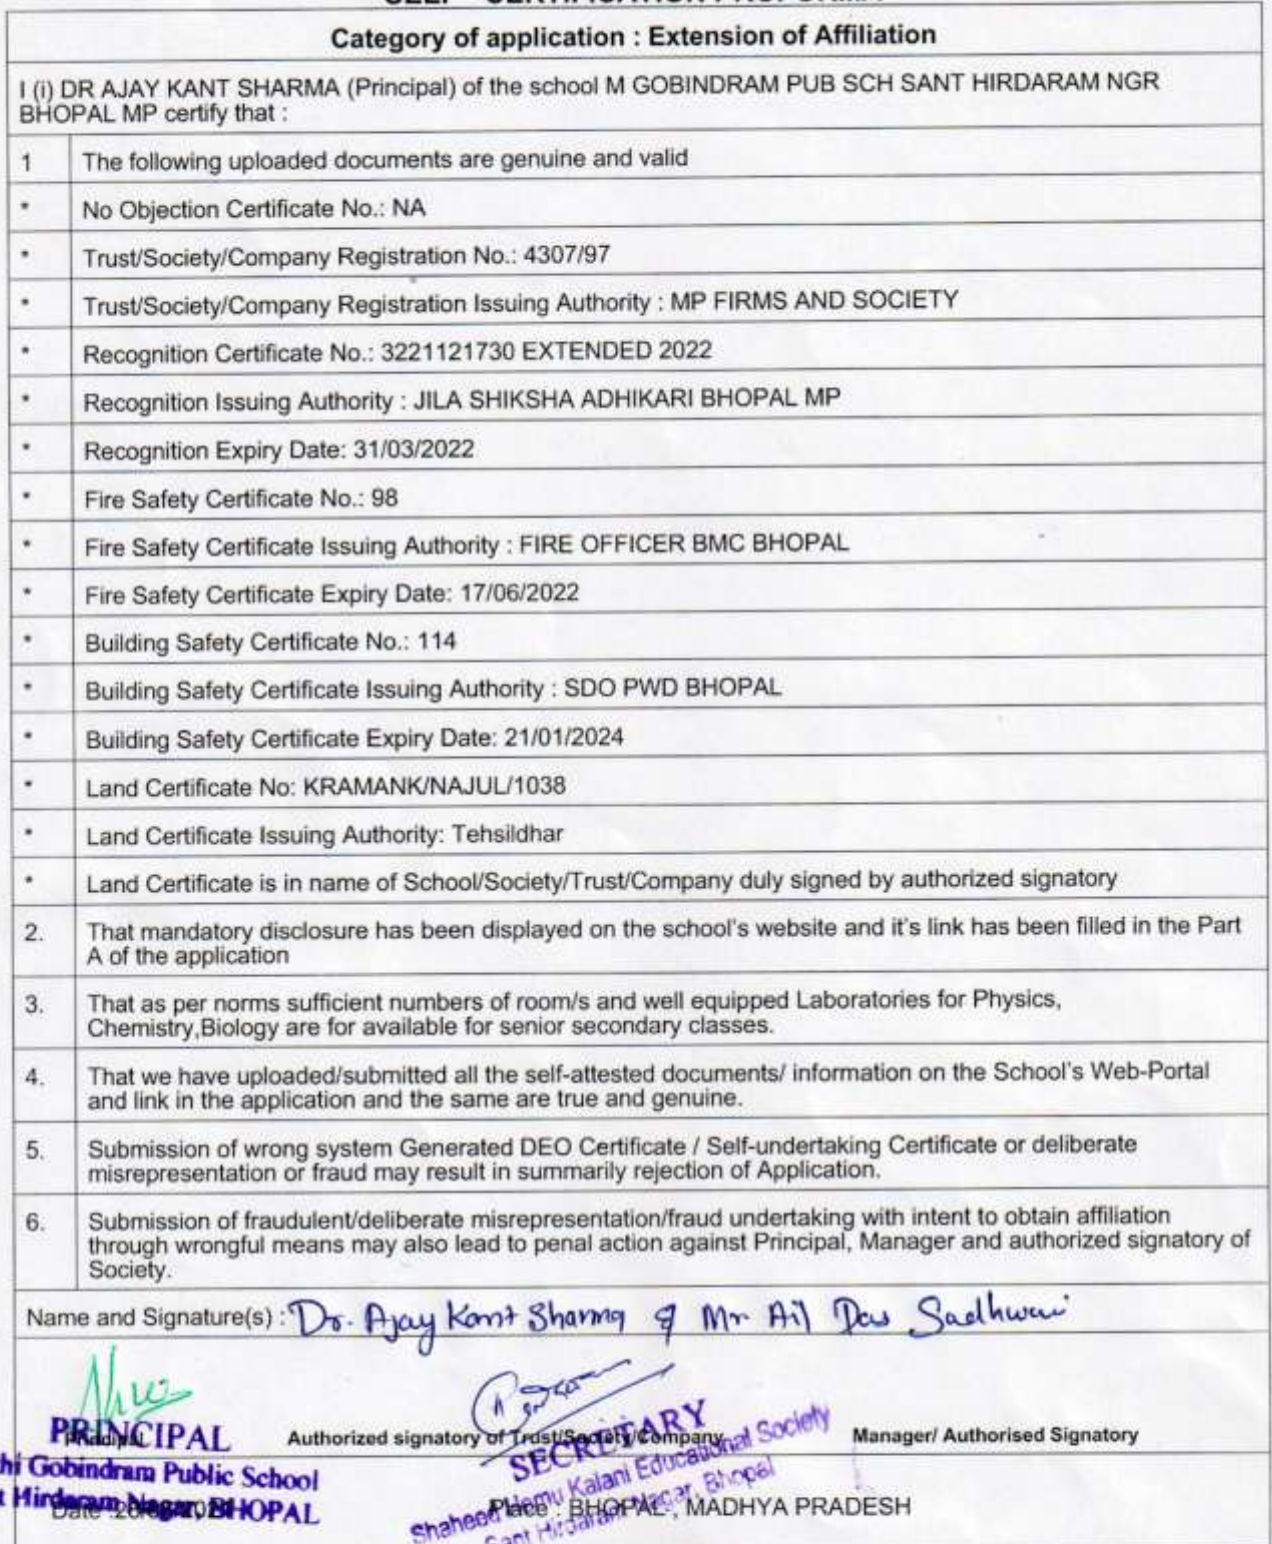 Category of application : Extension of Affiliation
I (i) DR AJAY KANT SHARMA (Principal) of the school M GOBINDRAM PUB SCH SANT HIRDARAM NGR
BHOPAL MP certify that :
1 The following uploaded documents are genuine and valid
* No Objection Certificate No.: NA
* Trust/Society/Company Registration No.: 4307/97
* Trust/Society/Company Registration Issuing Authority : MP FIRMS AND SOCIETY
* Recognition Certificate No.: 3221121730 EXTENDED 2022
* Recognition Issuing Authority : JILA SHIKSHA ADHIKARI BHOPAL MP
* Recognition Expiry Date: 31/03/2022
* Fire Safety Certificate No.: 98
* Fire Safety Certificate Issuing Authority : FIRE OFFICER BMC BHOPAL
* Fire Safety Certificate Expiry Date: 17/06/2022
* Building Safety Certificate No.: 114
* Building Safety Certificate Issuing Authority : SDO PWD BHOPAL
* Building Safety Certificate Expiry Date: 21/01/2024
* Land Certificate No: KRAMANK/NAJUL/1038
* Land Certificate Issuing Authority: Tehsildhar
* Land Certificate is in name of School/Society/Trust/Company duly signed by authorized signatory
2. That mandatory disclosure has been displayed on the school's website and it's link has been filled in the Part
A of the application
3. That as per norms sufficient numbers of room/s and well equipped Laboratories for Physics,
Chemistry,Biology are for available for senior secondary classes.
4. That we have uploaded/submitted all the self-attested documents/ information on the School's Web-Portal
and link in the application and the same are true and genuine.
5. Submission of wrong system Generated DEO Certificate / Self-undertaking Certificate or deliberate
misrepresentation or fraud may result in summarily rejection of Application.
6. Submission of fraudulent/deliberate misrepresentation/fraud undertaking with intent to obtain affiliation
through wrongful means may also lead to penal action against Principal, Manager and authorized signatory of
Society.
Name and Signature(s) : Dr. Ajay Kant Sharma & Mr Ail Das Sadhwani
Principal Authorized signatory of Trust/Society/Company Manager/ Authorised Signatory
PRINCIPAL
hi Gobindram Public School
t Hirdaram Nagar, BHOPAL
SECRETARY
Shaheed Hemu Kalani Educational Society
Sant Hirdaram Nagar, Bhopal
Date Place : BHOPAL , MADHYA PRADESH